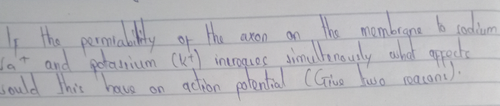 If the permiability of the axon on the membrane to sodium
a+ and potassium (K+) increase simultenously what effects
would this have on action potential (Give two reasons).